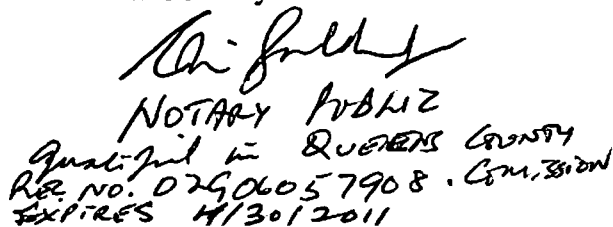 NOTARY PUBLIC
Qualified in QUEENS COUNTY
REG. NO. 02GO6057908. COMMISSION
EXPIRES 4/30/2011